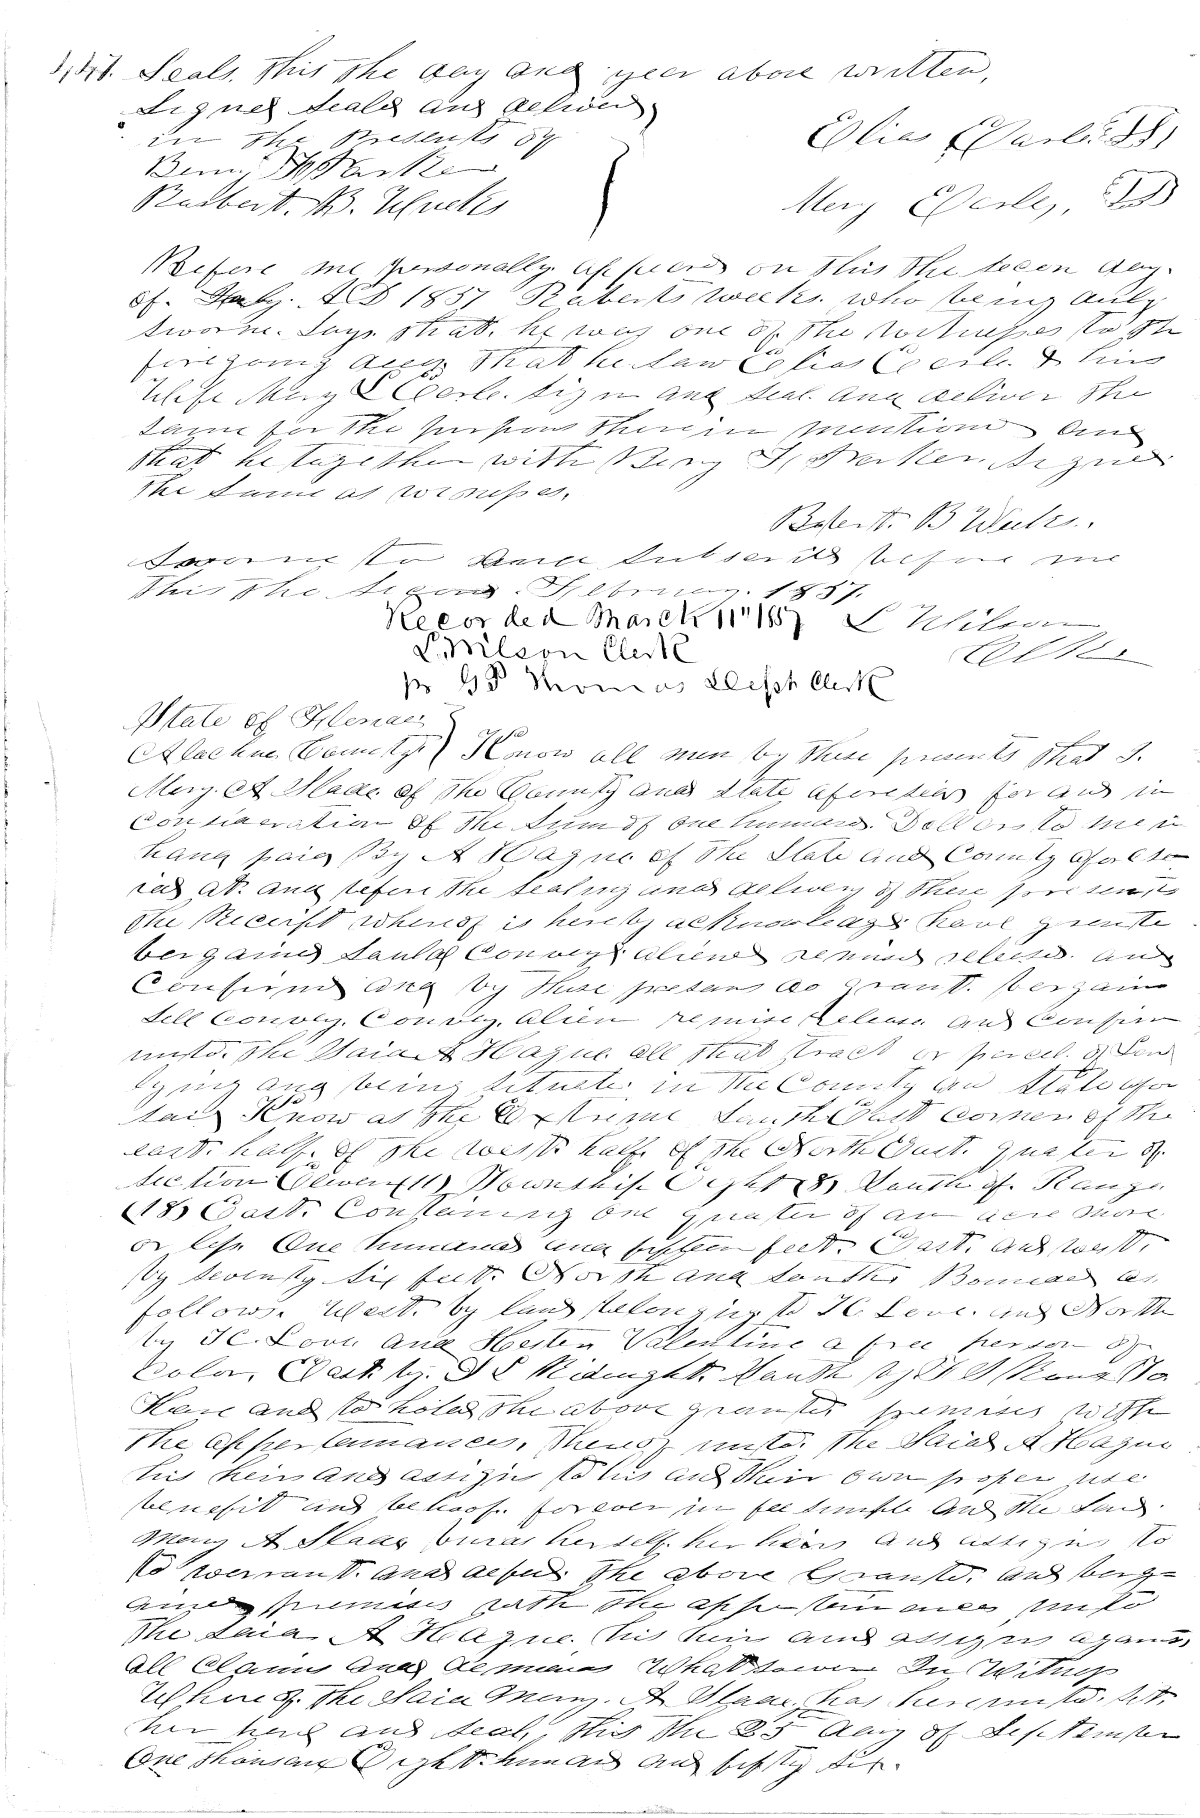 441. Seals. this the day and year above written,
Signed Seald and deliverd
in the Presents of
Elias Earle. {LS}
Benj. H Parker
Robert. B. Weeks
Mary Earle, {LS}
Before me personally. appeard on this the secon day.
of. A D 1857 Roberts weeks. who being duly
sworne. Says that. he was one of the witnesses to the
foregoing deed That he saw Elias Earle. & his
Wife Mary Earle. sign and seal. and deliver the
same for the purpous therein mentiond and
that he together with Benj H Parker. signed
the same as witnesses.
Robert. B Weeks.
Sworne to and subscribd before me
this the second. February. 1857.
Recorded March 11" 1857 L Wilson
L. Wilson Clerk Clk
pr G P Thomas Dept Clerk
State of Florida
Alachua County Know all men by these presents that I.
Mary. A Slade of the County and state aforesaid for and in
consideration of the sum of one hundred. Dollars to me in
hand paid By A Hague of the State and County afores
ied at. and before the sealing and delivery of these presents
the Receipt whereof is hereby acknowledgd have grante
bergained sould Conveyd aliend remised released. and
Confirmd and by these presans do grant. bergain
sell convey. Convey. alien remise release and confirm
unto. the Said A Hague. all that tract or parcel. of Land
lying and being situate. in the County and State afor
said Know as the Extreme South East corner of the
east. half. of the west. half. of the North East. quater of.
section Eleven (11) Township Eight (8) South of. Range.
(18) East. Containing one quater of an acre more
or less One hundred and fifteen feet. East. and west.
by seventy six feet. North and souths Bounded as
follows. West. by land belonging to H C Love. and North
by H C. Love and Hester Valentine a free person of
Color, East by. South by To
Have and to hold the above granted premises with
the appertainances, thereof unto. the Said A Hague
his heirs and assigns to his and their own proper use
benefit and behoof. forever in fee simple and the said.
Mary A Slade binds herself. her heirs and assigns to
to warrant. and defend. the above Granted. and berg=
ained premises with the appertainances unto
the said A Hague. his heirs and assigns against
all claims and demands Whatsoever In Witness
Whereof. the Said Mary. A Slade. has hereunto. set.
her hand and seal, this the 25 day of September
One thousand Eight hundred and fifty six.